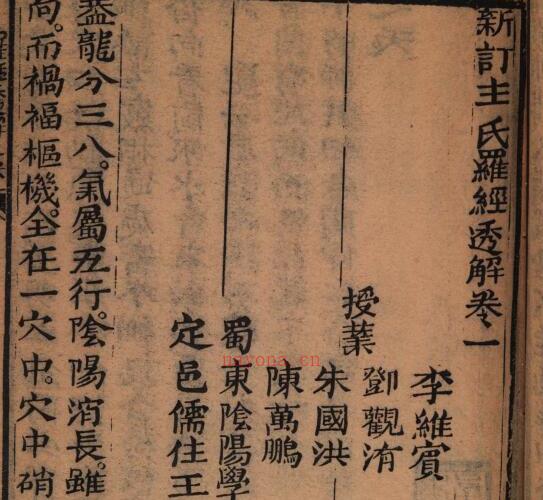 新訂主氏羅經透解卷一
李維賓
授業
鄧觀洧
朱國洪
陳萬鵬
蜀東陰陽學
定邑儒住王
蓋龍分三八。氣屬五行。陰陽消長。雖
向。而禍福樞機。全在一穴中。穴中硝
nayona.cn